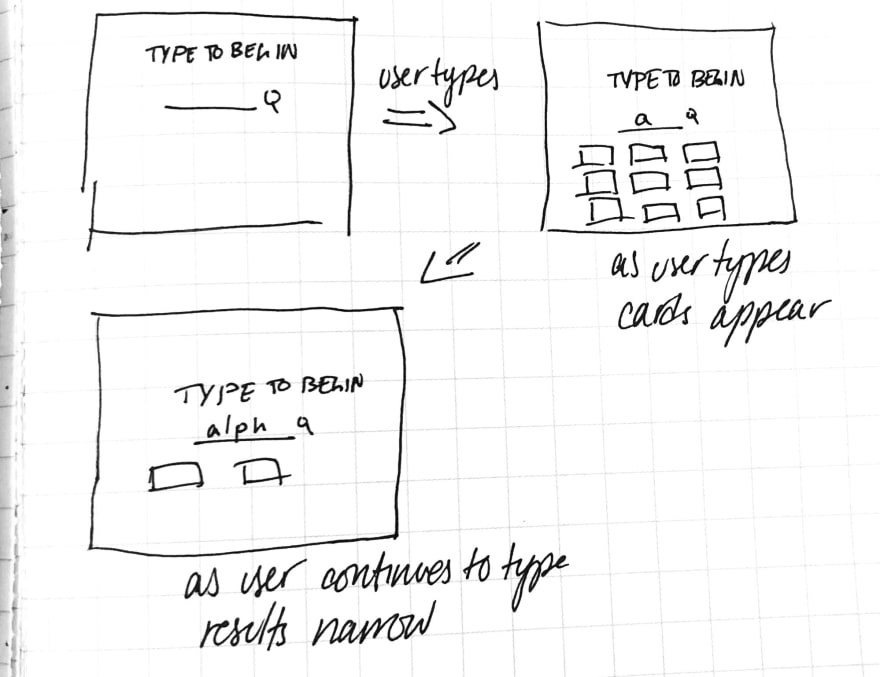 TYPE TO BEGIN
user types
TYPE TO BEGIN
a
as user types
cards appear
TYPE TO BEGIN
alph
as user continues to type
results narrow